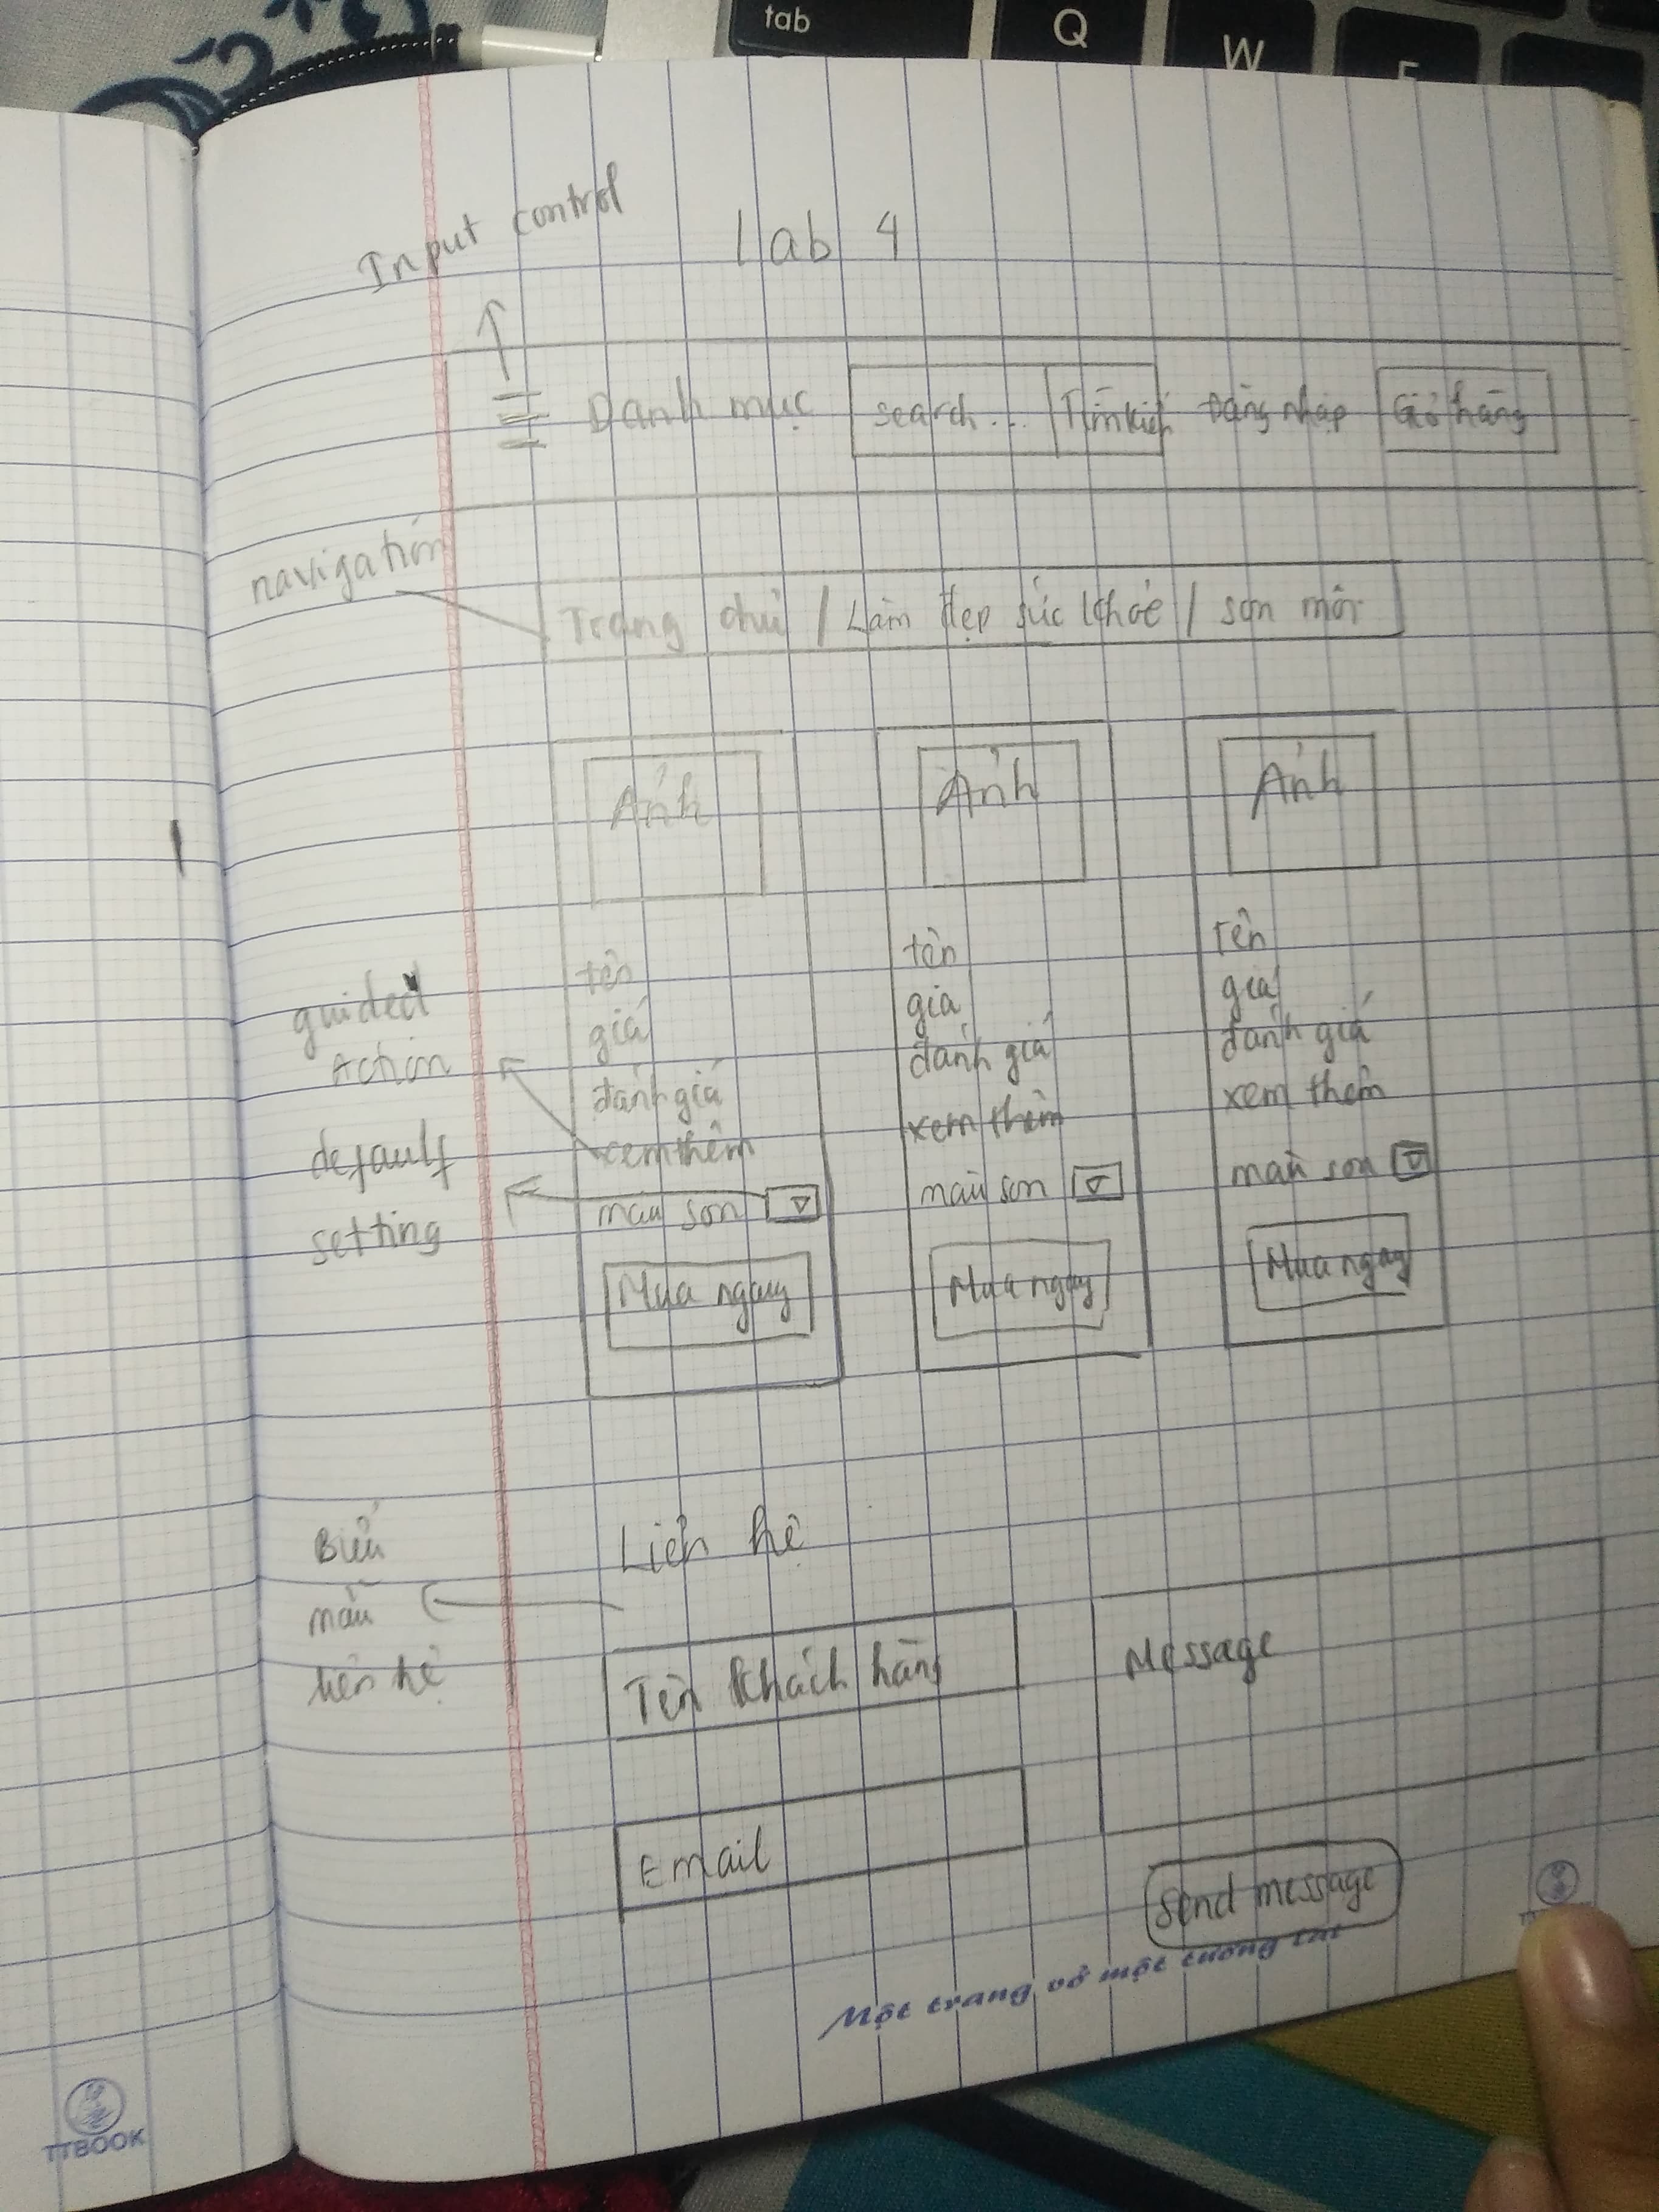 tab Q W E
Input control
Lab 4
Danh mục search... Tìm kiếm Đăng nhập Giỏ hàng
navigation
Trang chủ / Làm đẹp sức khỏe / son môi
Ảnh Ảnh Ảnh
tên tên Tên
giá giá giá
đánh giá đánh giá đánh giá
xem thêm xem thêm xem thêm
màu son màu son màu son
Mua ngay Mua ngay Mua ngay
guided
Action
default
setting
Biểu
mẫu
liên hệ
Liên hệ
Tên khách hàng
Message
Email
Send message
Một trang vở một tương lai
TTBOOK